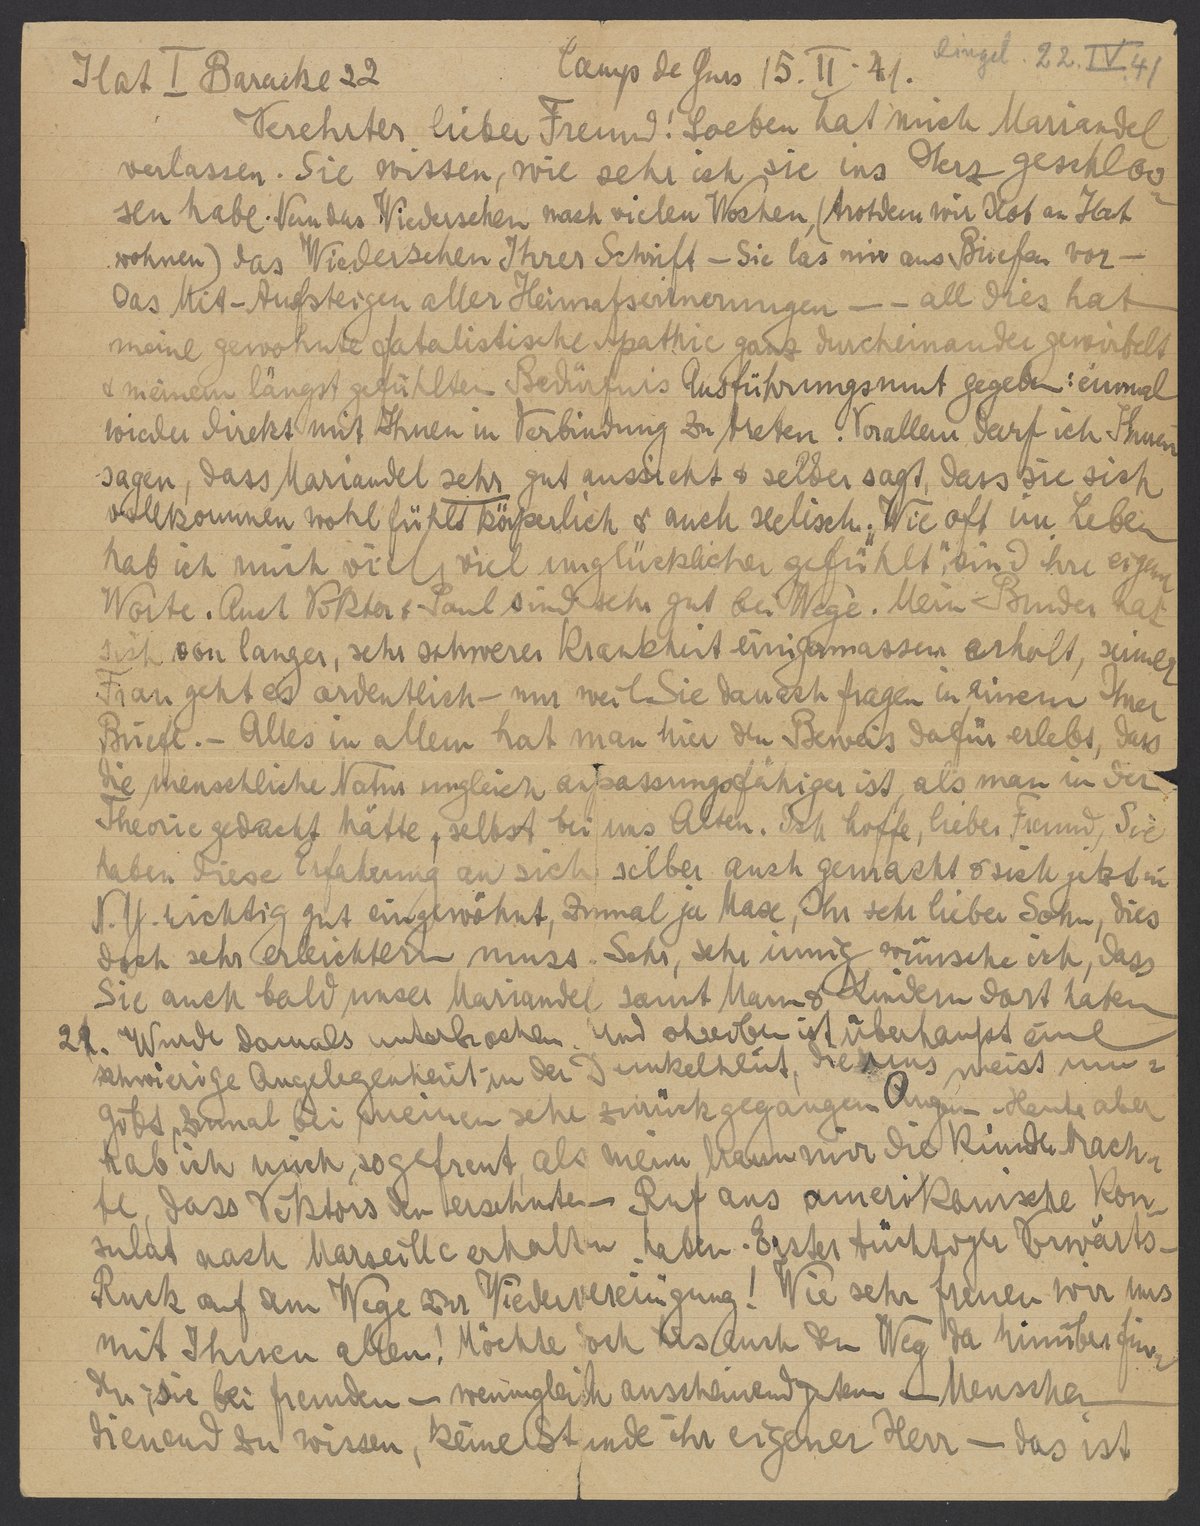 Ilot I Baracke 22 Camp de Gurs 15. II. 41. eingel. 22. IV. 41
Verehrter lieber Freund! Soeben hat mich Mariandel
verlassen. Sie wissen, wie sehr ich sie ins Herz geschlos-
sen habe. Nun das Wiedersehen nach vielen Wochen, (trotzdem wir Ilot an Ilot
wohnen) das Wiedersehen Ihrer Schrift – Sie las mir aus Briefen vor –
das Mit-Aufsteigen aller Heimatserinnerungen – – all dies hat
meine gewohnte fatalistische Apathie ganz durcheinander gewirbelt
& meinem längst gefühlten Bedürfnis Ausführungsmut gegeben: einmal
wieder direkt mit Ihnen in Verbindung zu treten. Vorallem darf ich Ihnen
sagen, dass Mariandel sehr gut aussieht & selber sagt, dass sie sich
vollkommen wohl fühlt körperlich & auch seelisch. "Wie oft im Leben
hab ich mich viel, viel unglücklicher gefühlt", sind ihre eigene
Worte. Auch Viktor & Paul sind sehr gut bei Wege. Mein Bruder hat
sich von langer, sehr schwerer Krankheit einigermassen erholt, seiner
Frau geht es ordentlich – nur weil Sie danach fragen in einem Ihrer
Briefe. – Alles in allem hat man hier den Beweis dafür erlebt, dass
die menschliche Natur ungleich anpassungsfähiger ist, als man in der
Theorie gedacht hätte, selbst bei uns Alten. Ich hoffe, lieber Freund, Sie
haben diese Erfahrung an sich selber auch gemacht & sich jetzt in
N.Y. richtig gut eingewöhnt, zumal ja Maxe, Ihr sehr lieber Sohn, dies
doch sehr erleichtern muss. Sehr, sehr innig wünsche ich, dass
Sie auch bald unser Mariandel samt Mann & Kindern dort haben
21. Wurde damals unterbrochen. Und schreiben ist überhaupt eine
schwierige Angelegenheit in der Dunkelheit, die uns meist um-
gibt, zumal bei meinen sehr zurückgegangen Augen. Heute aber
hab ich mich so gefreut, als mein Mann mir die Kunde brach-
te, dass Viktors den ersehnten Ruf ans amerikanische Kon-
sulat nach Marseille erhalten haben. Erster tüchtiger Vorwärts-
Ruck auf dem Wege zur Wiedervereinigung! Wie sehr freuen wir uns
mit Ihnen allen! Möchte doch auch den Weg da hinüber fin-
den; sie bei fremden – wenngleich anscheinend guten – Menschen
dienend zu wissen, keine Stunde ihr eigener Herr – das ist